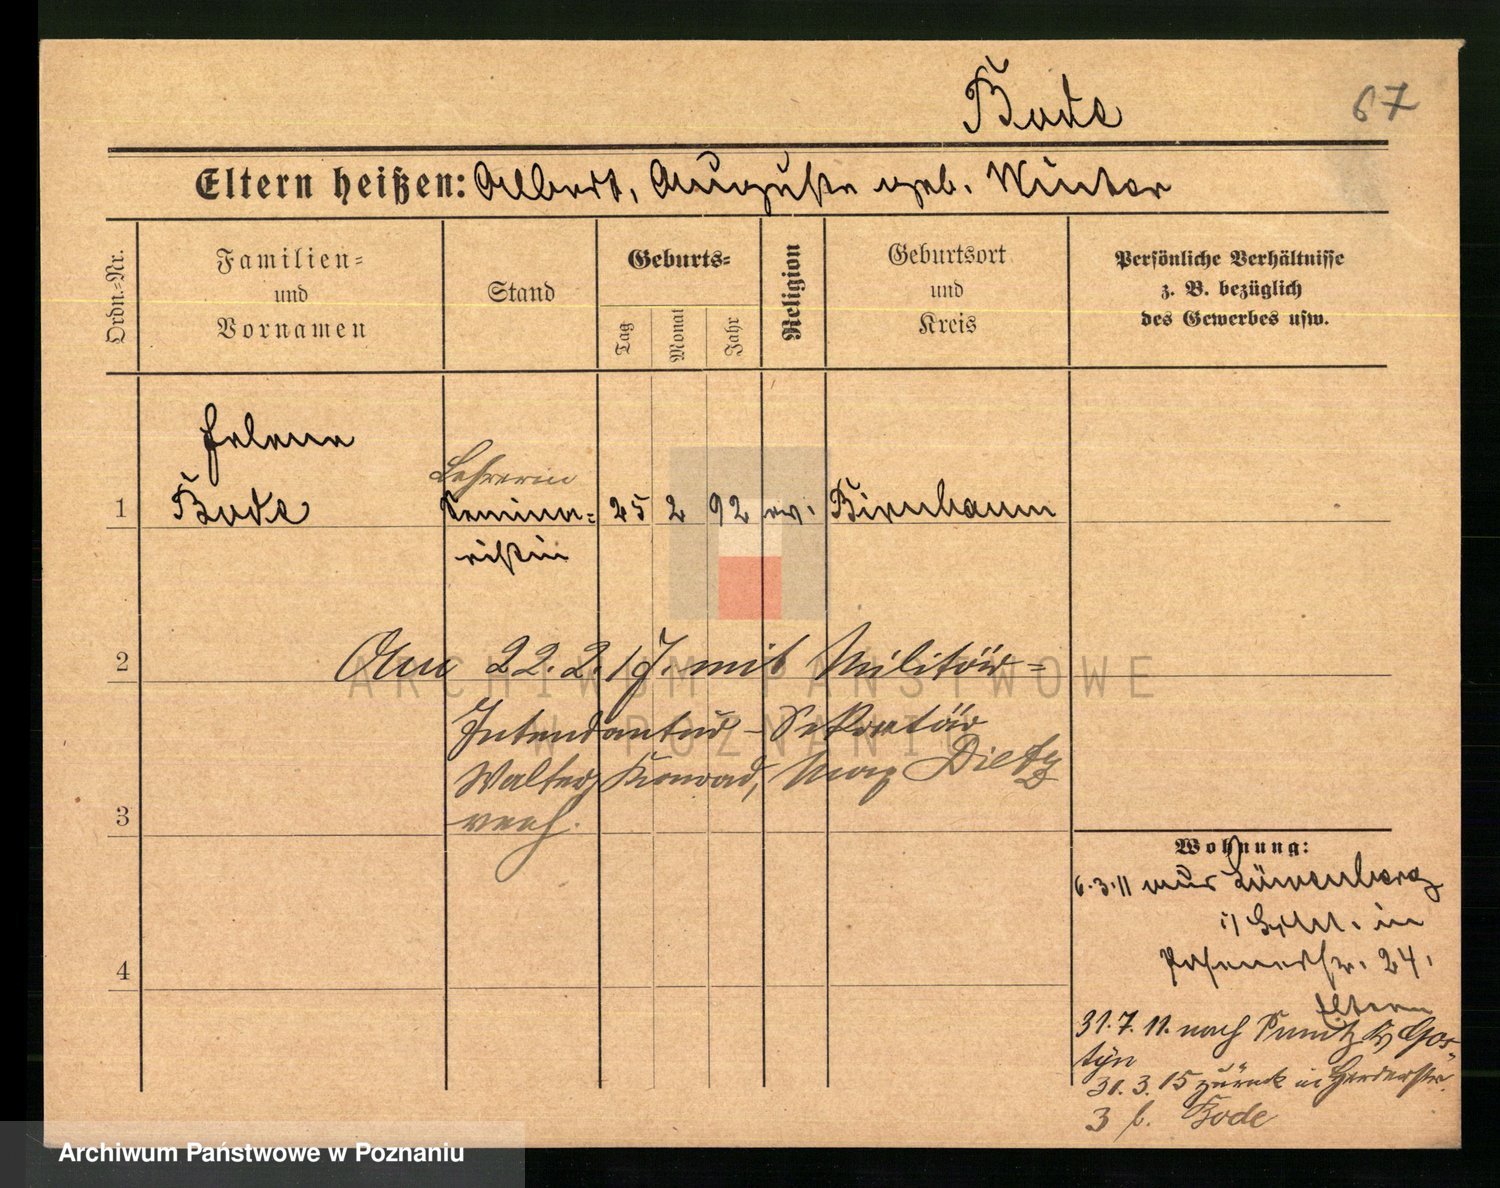 Bode
67
Eltern heißen: Albert, Auguste geb. Winter
Ordn.-Nr.
Familien-
und
Vornamen
Stand
Geburts-
Tag
Monat
Jahr
Religion
Geburtsort
und
Kreis
Persönliche Verhältnisse
z. B. bezüglich
des Gewerbes usw.
Helene
Lehrerin
1 Bode Semina- 25 2 92 ev. Birnbaum
ristin
2 Am 22.2.17. mit Militär-
Intendantur-Sekretär
Walter, Konrad, Max Dietz
3 verh.
Wohnung:
6.3.11 aus Löwenberg
i/ Schl. in
Posenerstr. 24.
4
Eltern
31.7.11. nach Punitz Kr Gos-
tyn
31.3.15 zurück in Herderstr.
3 b. Bode
ARCHIWUM PAŃSTWOWE
W POZNANIU
Archiwum Państwowe w Poznaniu